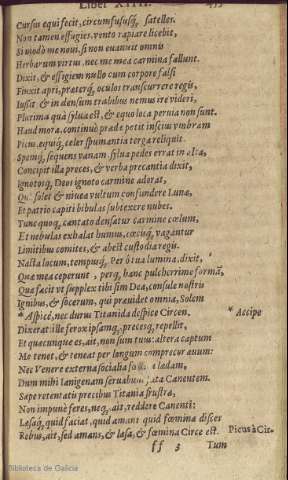 Liber XIIII.
Cursus equi fecit, circumfususq, satelles.
Non tamen effugies, vento rapiare licebit,
Si modò me noui, si non euanuit omnis
Herbarum virtus, nec me mea carmina fallunt.
Dixit, & effigiem nullo cum corpore falsi
Finxit apri, præterq, oculos transcurrere regis,
Iussit & in densum trabibus nemus ire videri,
Plurima quà sylua est, & equo loca peruia non sunt.
Haud mora, continuò prædæ petit inscius vmbram
Picus, equiq, celer spumantia terga reliquit.
Spemq, sequens vanam, sylua pedes errat in alta,
Concipit illa preces, & verba precantia dixit,
Ignotosq, Deos ignoto carmine adorat,
Quo solet & niueæ vultum confundere Lunæ,
Et patrio capiti bibulas subtexere nubes.
Tunc quoq, cantato densatur carmine cœlum,
Et nebulas exhalat humus, cæciq, vagantur
Limitibus comites, & abest custodia regis.
Nacta locum, tempusq, Per ô tua lumina, dixit,
Quæ mea ceperunt, perq, hanc pulcherrime formã,
Quæ facit vt supplex tibi sim Dea, consule nostris
Ignibus, & socerum, qui præuidet omnia, Solem
* Aspice, nec durus Titanida despice Circen. * Accipe
Dixerat: ille ferox ipsamq, precesq, repellit,
Et quæcunque es, ait, non sum tuus: altera captum
Me tenet, & teneat per longum comprecor æuum:
Nec Venere externa socialia lædam,
Dum mihi Ianigenam seruabunt fata Canentem.
Sæpe retentatis precibus Titania frustra,
Non impunè feres, neq, ait, reddere Canenti:
Læsaq, quid faciat, quid amans quid fœmina disces
Rebus, ait, sed amans, & læsa, & fœmina Circe est. Picus à Cir-
ff 3 Tum
Biblioteca de Galicia